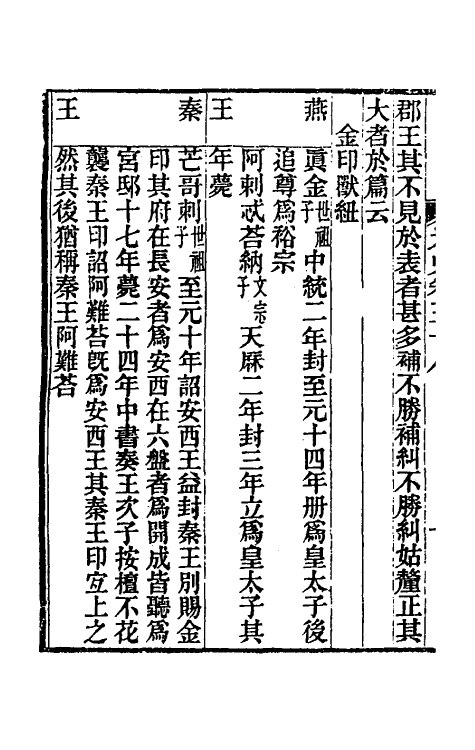 郡王其不見於表者甚多補不勝補糾不勝糾姑釐正其
大者於篇云
金印獸紐
燕 眞金世祖子中統二年封至元十四年册爲皇太子後
追尊爲裕宗
阿剌忒荅納文宗子天厤二年封三年立爲皇太子其
王 年薨
秦 芒哥剌世祖子至元十年詔安西王益封秦王別賜金
印其府在長安者爲安西在六盤者爲開成皆聽爲
宮邸十七年薨二十四年中書奏王次子按檀不花
襲秦王印詔阿難荅旣爲安西王其秦王印宐上之
王 然其後猶稱秦王阿難荅